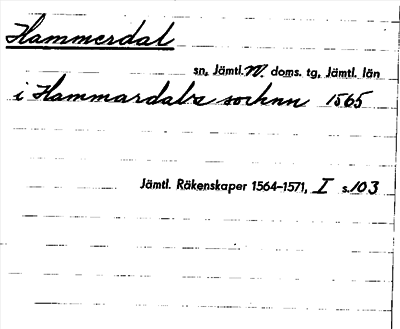 Hammerdal
sn, Jämtl. N. doms. tg, Jämtl. län
i Hammardals sochnn 1565
Jämtl. Räkenskaper 1564–1571, I s. 103